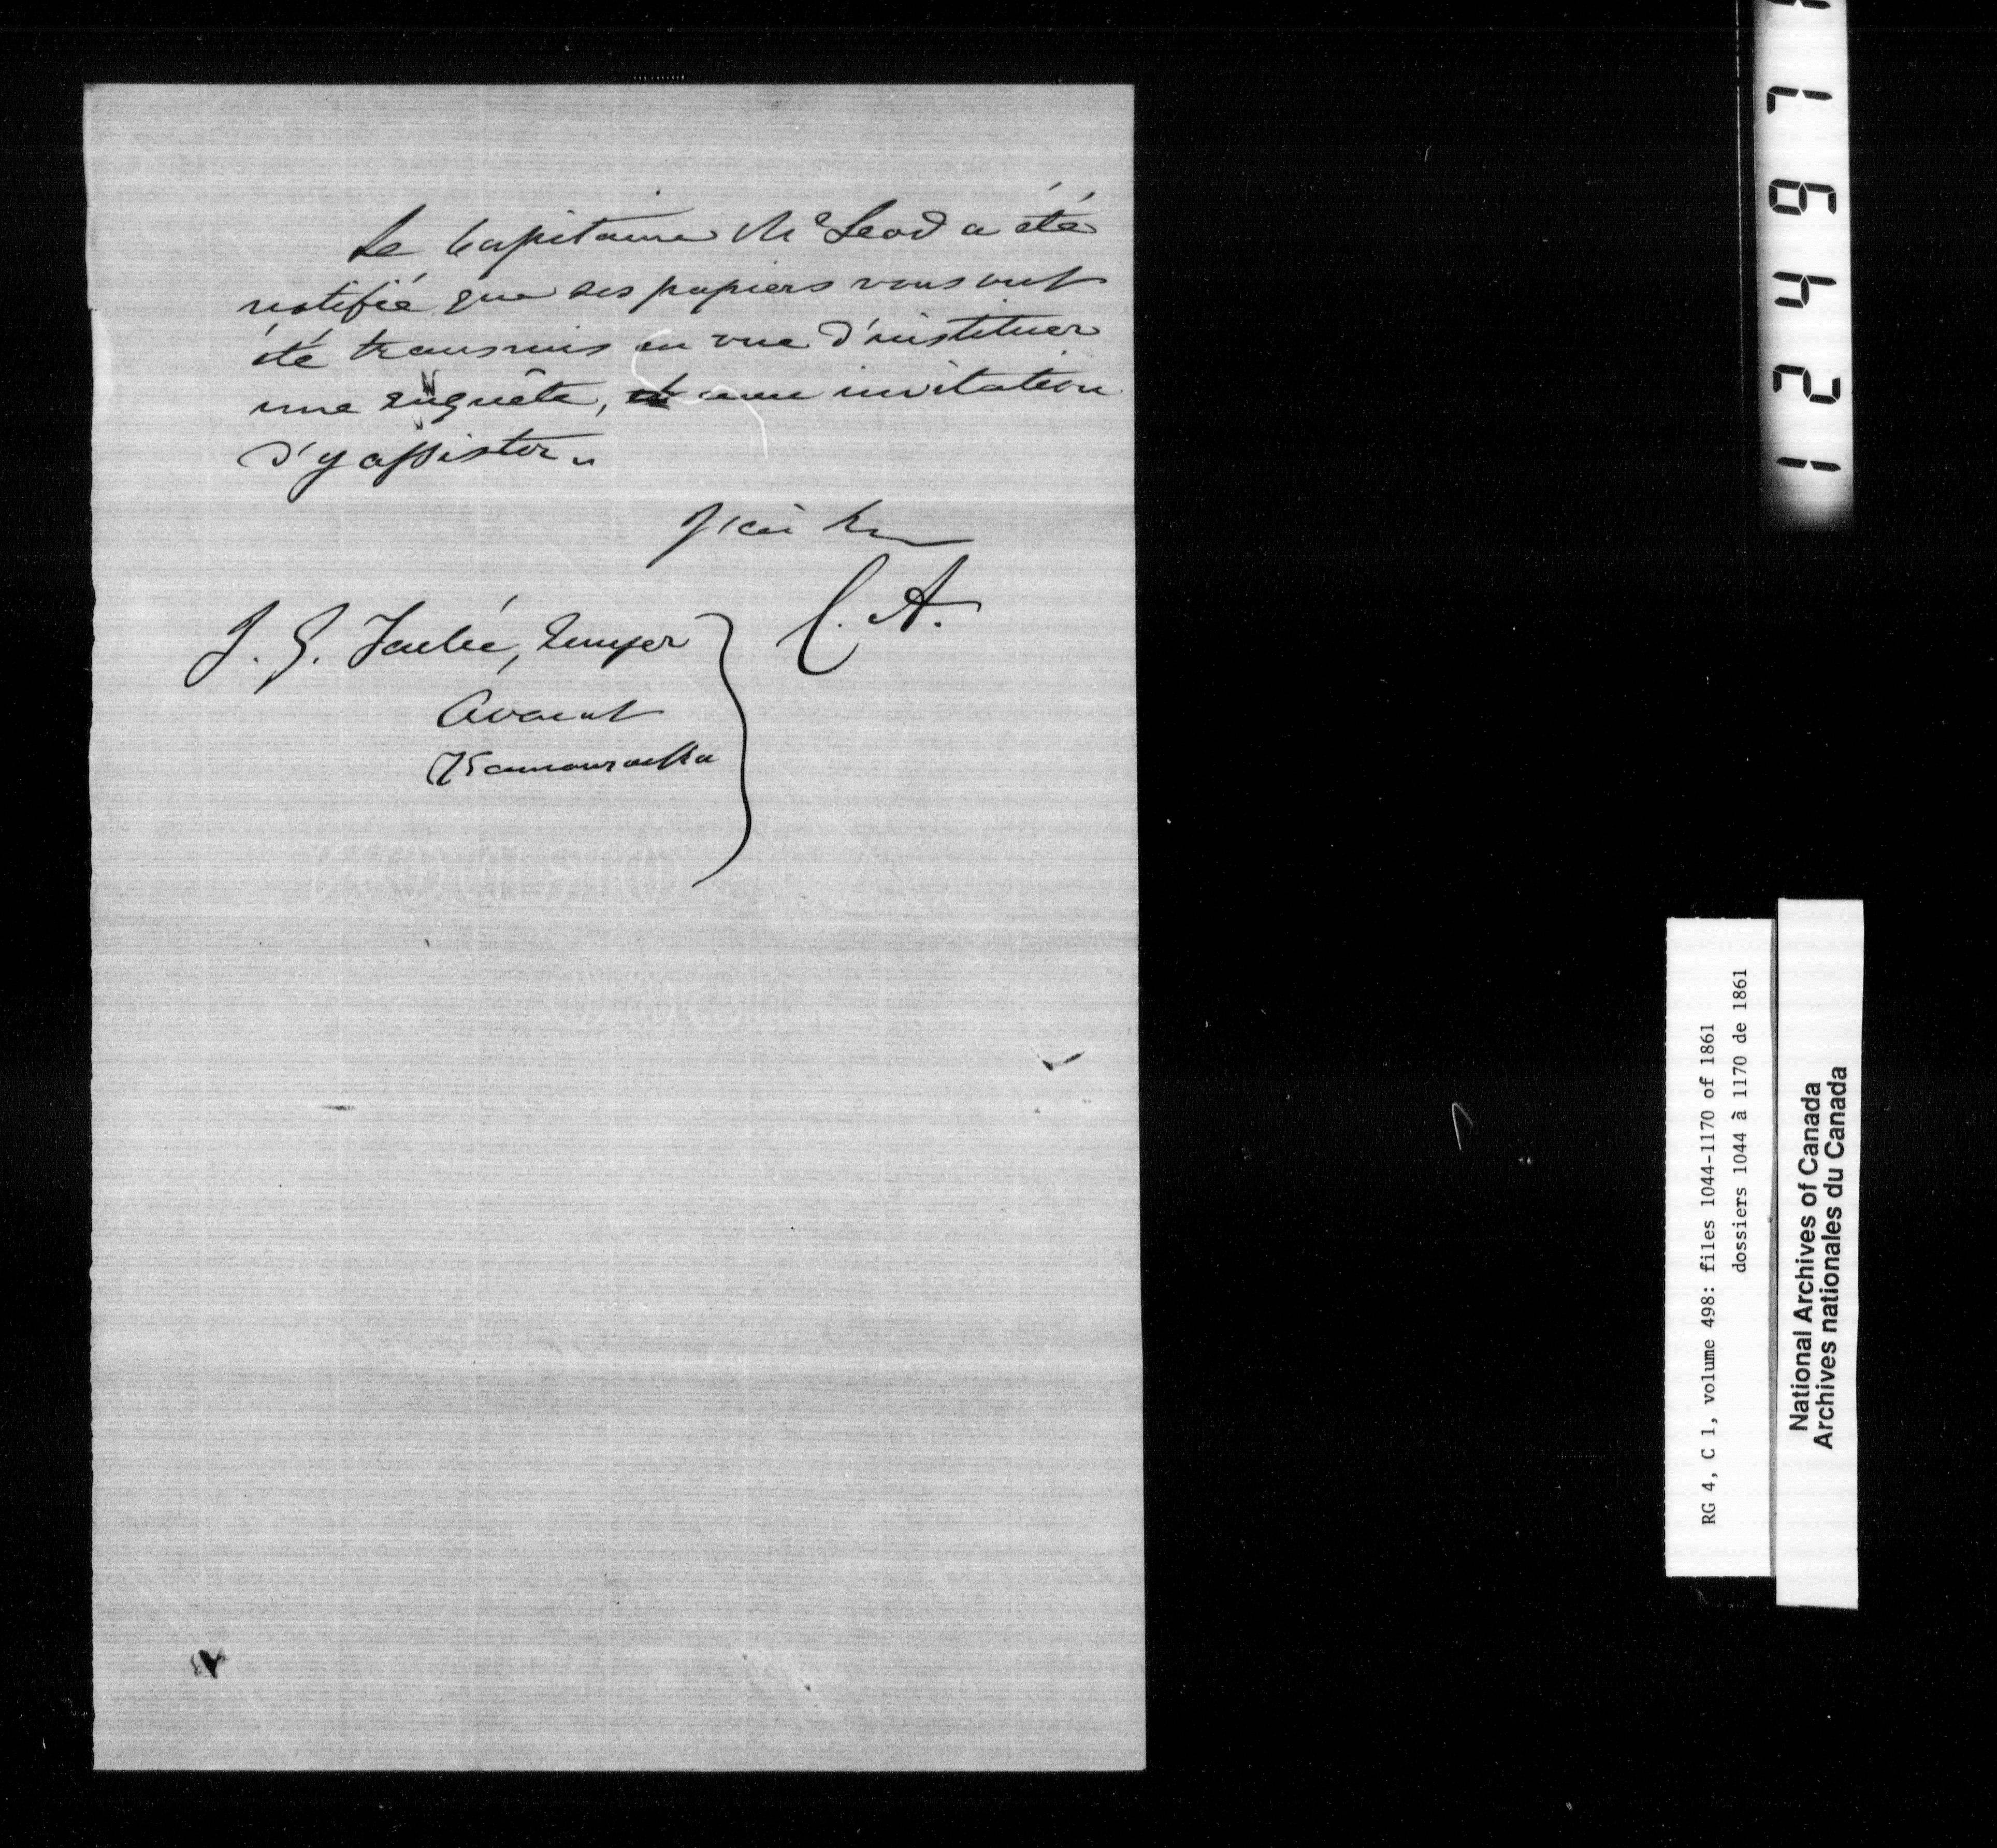 Le Capitaine McLeod a été
notifié que ses papiers vous ont
été transmis en vue d'instituer
une enquête, avec invitation
d'y assister.
J'ai
C. A.
J. G. Taché, Ecuyer
Avocat
Kamouraska
12497
RG 4, C 1, volume 498: files 1044-1170 of 1861
dossiers 1044 à 1170 de 1861
National Archives of Canada
Archives nationales du Canada